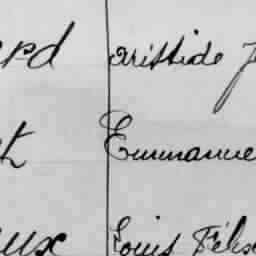 erd Aristide J
et Emmanue
eux Louis Félix